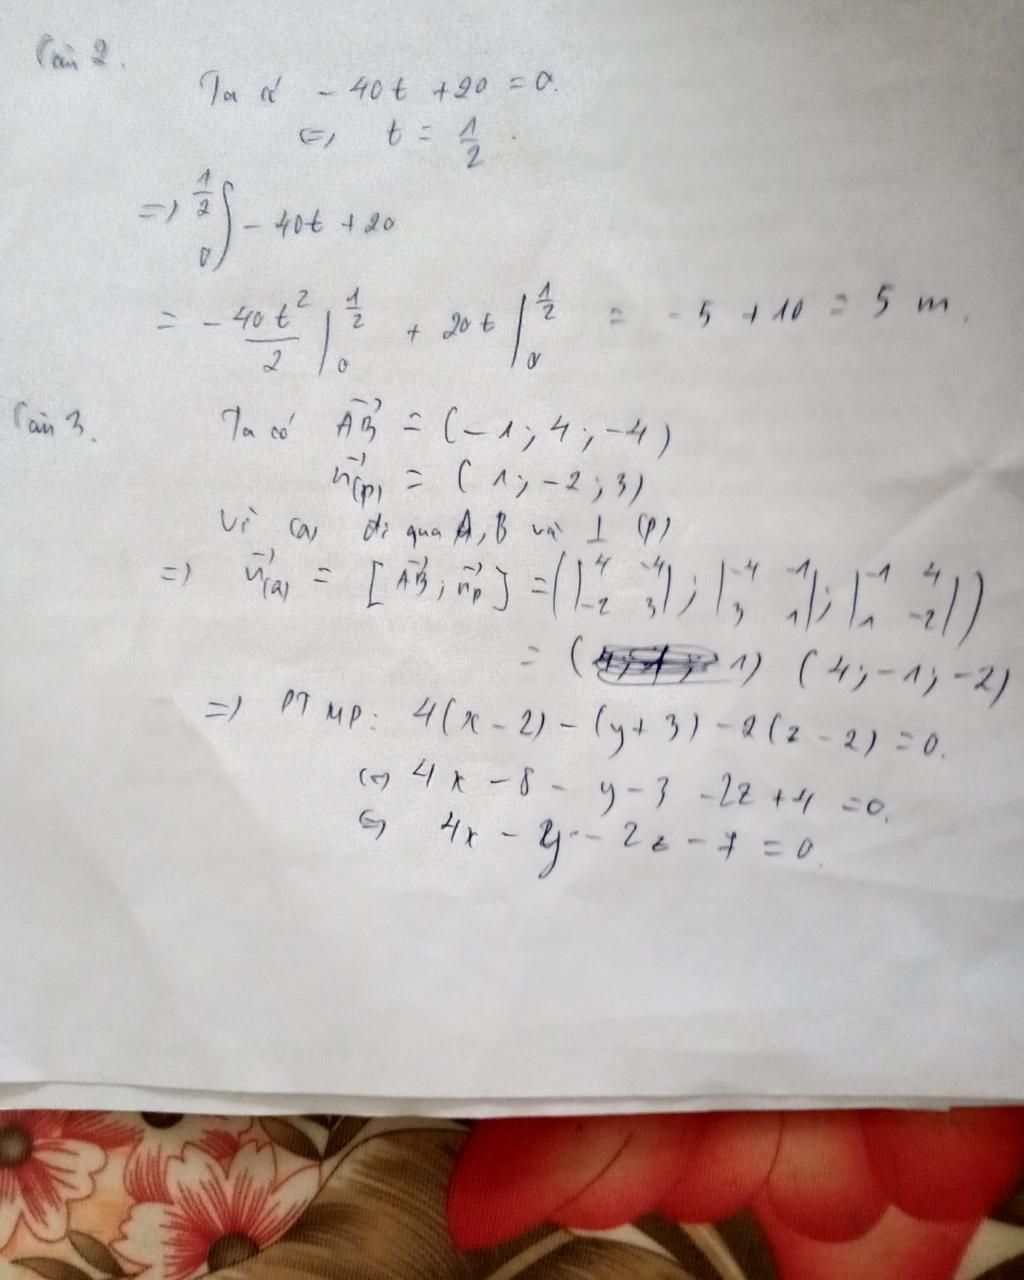 Câu 2.
Ta có - 40t + 20 = 0.
<=> t = 1/2.
=> ∫_0^{1/2} - 40t + 20
= - 40t²/2 |_0^{1/2} + 20t |_0^{1/2} = -5 + 10 = 5 m.
Câu 3. Ta có AB→ = (-1; 4; -4)
n→(P) = (1; -2; 3)
Vì (α) đi qua A, B và ⊥ (P)
=> n→(α) = [AB→; n→P] = (|4 -4; -2 3|; |-4 -1; 3 1|; |-1 4; 1 -2|)
= ( 1) (4; -1; -2)
=> PT MP: 4(x - 2) - (y + 3) - 2(z - 2) = 0.
<=> 4x - 8 - y - 3 - 2z + 4 = 0.
<=> 4x - y - 2z - 7 = 0.